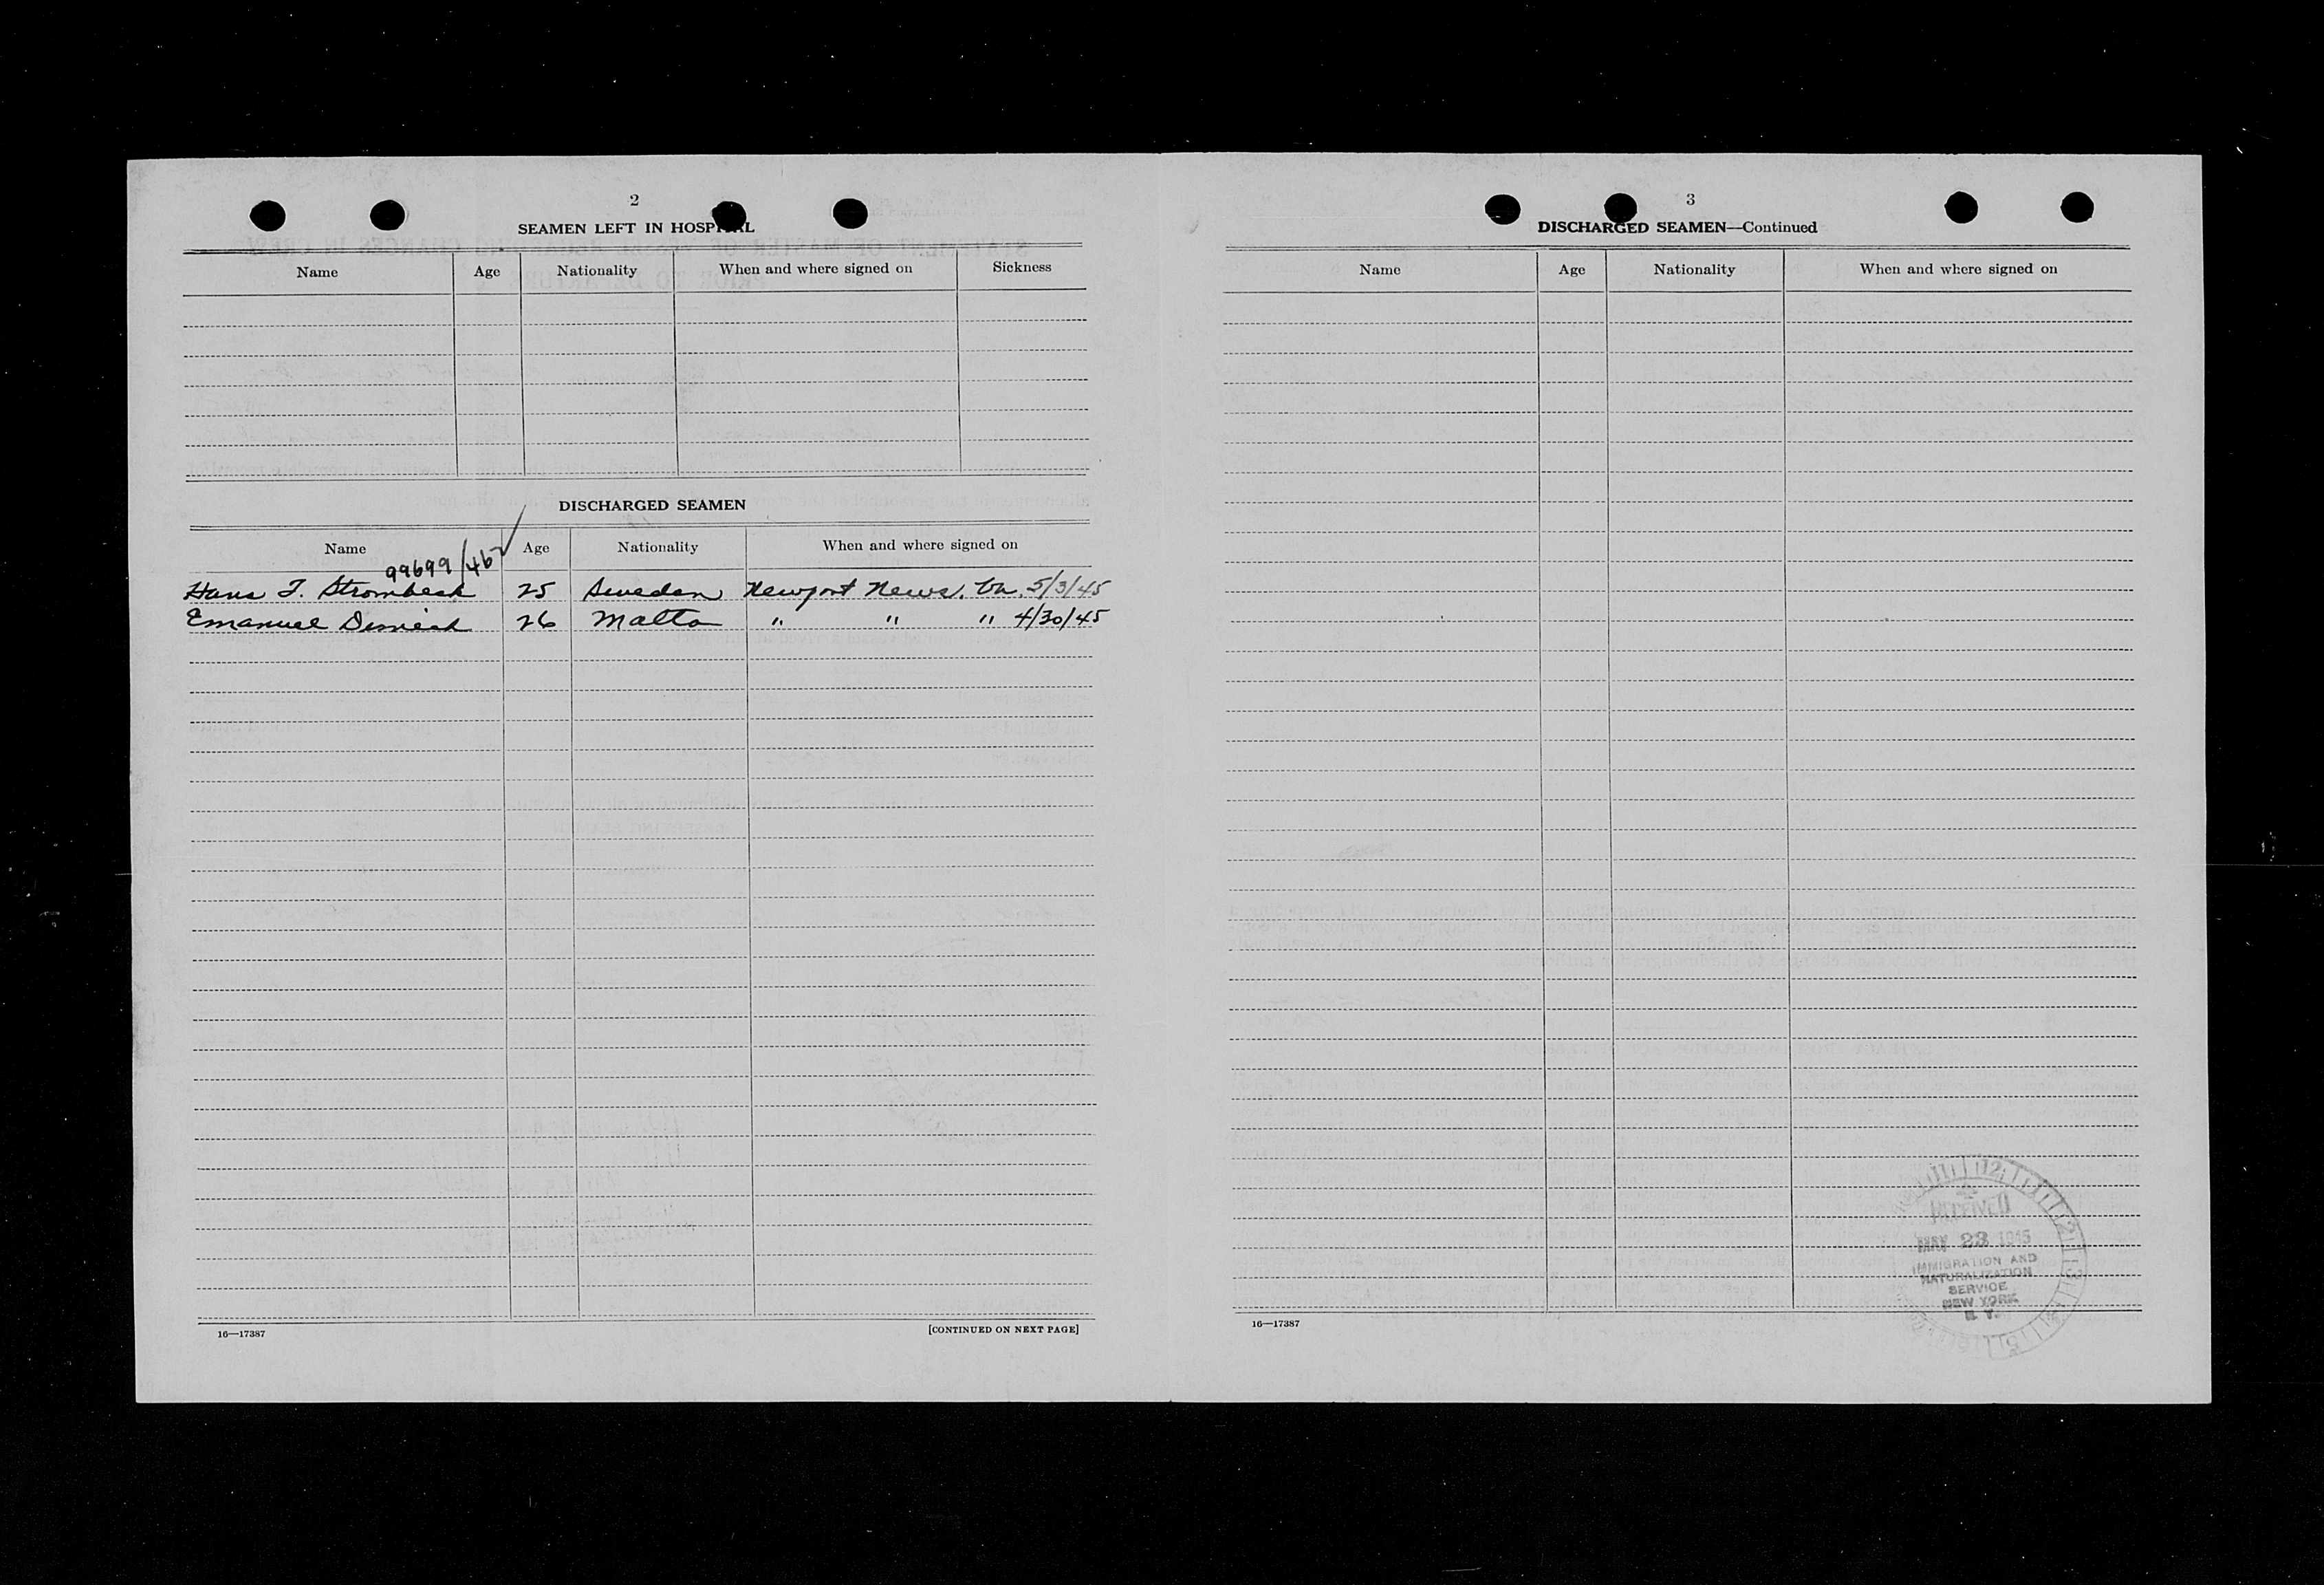 2
SEAMEN LEFT IN HOSPITAL
Name Age Nationality When and where signed on Sickness
DISCHARGED SEAMEN
Name Age Nationality When and where signed on
99699/45
Hans J. Strombeck 25 Sweden Newport News, Va. 5/3/45
Emanuel 26 Malta " " " 4/30/45
16—17387 [CONTINUED ON NEXT PAGE]
3
DISCHARGED SEAMEN—Continued
Name Age Nationality When and where signed on
RECEIVED
MAY 23 1945
IMMIGRATION AND
NATURALIZATION
SERVICE
NEW YORK
N. Y.
16—17387